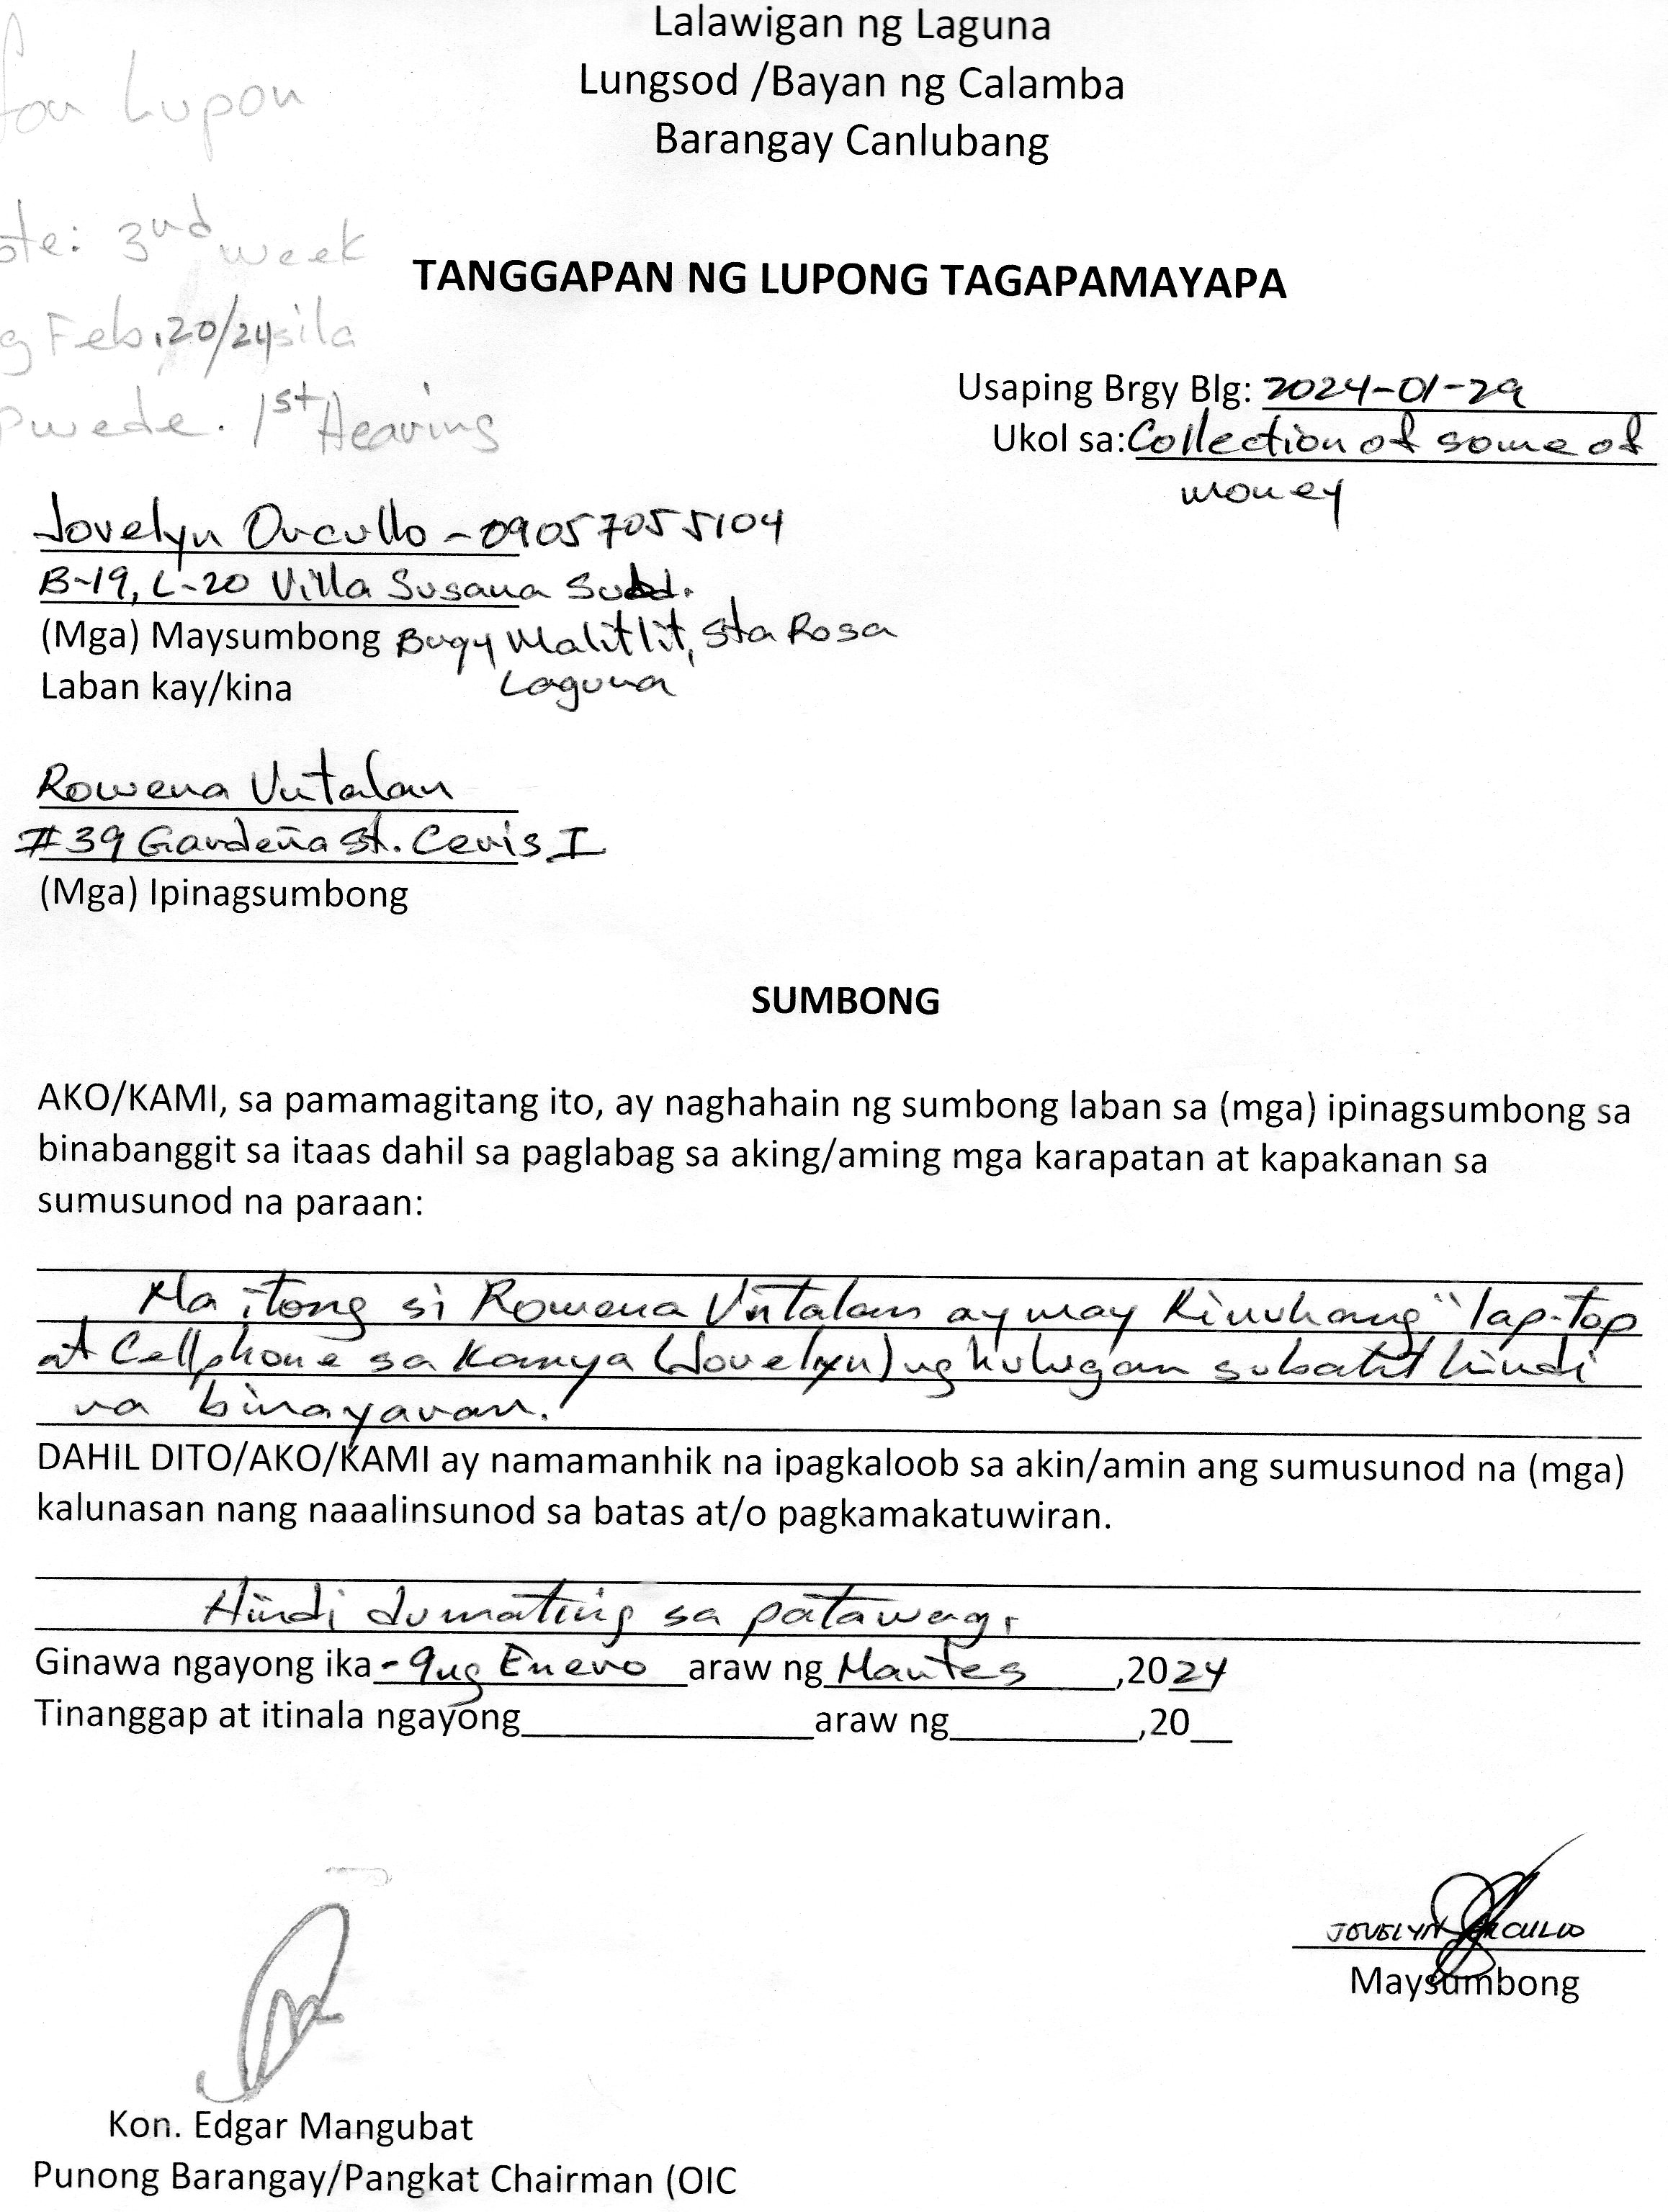 Lalawigan ng Laguna
Lungsod /Bayan ng Calamba
Barangay Canlubang
for Lupon
ote: 3nd week
g Feb. 20/24 sila
pwede. 1st Hearing
TANGGAPAN NG LUPONG TAGAPAMAYAPA
Usaping Brgy Blg: 2024-01-29
Ukol sa: Collection of some of
money
Jovelyn Orcullo - 09057055104
B-19, L-20 Villa Susana Subd.
(Mga) Maysumbong Brgy Malitlit, Sta Rosa
Laban kay/kina Laguna
Rowena Vntalan
#39 Gardeña St. Ceris I
(Mga) Ipinagsumbong
SUMBONG
AKO/KAMI, sa pamamagitang ito, ay naghahain ng sumbong laban sa (mga) ipinagsumbong sa
binabanggit sa itaas dahil sa paglabag sa aking/aming mga karapatan at kapakanan sa
sumusunod na paraan:
Na itong si Rowena Vntalan ay may kinuhang "lap-top
at Cellphone sa kanya (Jovelyn) ng hulugan subalit hindi
na binayaran.
DAHIL DITO/AKO/KAMI ay namamanhik na ipagkaloob sa akin/amin ang sumusunod na (mga)
kalunasan nang naaalinsunod sa batas at/o pagkamakatuwiran.
Hindi dumating sa patawag.
Ginawa ngayong ika-9 ng Enero araw ng Martes ,2024
Tinanggap at itinala ngayong araw ng ,20
JOVELYN ORCULLO
Maysumbong
Kon. Edgar Mangubat
Punong Barangay/Pangkat Chairman (OIC